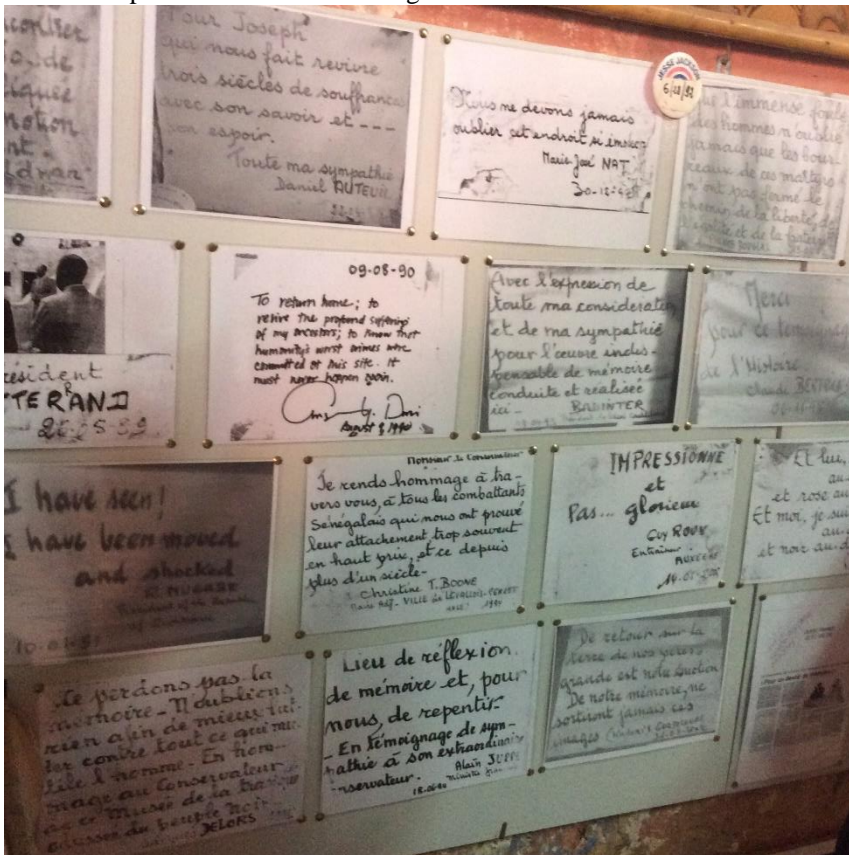 Pour Joseph
qui nous fait revivre
trois siècles de souffrances
avec son savoir et ---
son espoir.
Toute ma sympathie
Daniel AUTEUIL
Nous ne devons jamais
oublier cet endroit si
Marie-José NAT
JESSE JACKSON
des hommes n'oublie
jamais que les bour-
reaux de ces martyrs
n'ont pas fermé le
chemin de la liberté de
l'égalité et de la
résident
TTERAND
09-08-90
To return home; to
revive the profound suffering
of my ancestors; to know that
humanity's worst crimes were
committed at this site. It
must never happen again.
August 9, 1990
Avec l'expression de
toute ma considération
et de ma sympathie
pour l'œuvre indis-
pensable de mémoire
conduite et réalisée
ici -
BADINTER
Merci
pour ce témoignage
de l'Histoire
I have seen!
I have been moved
and shocked
R. MUGABE
Monsieur le Conservateur
Je rends hommage à tra-
vers vous, à tous les combattants
Sénégalais qui nous ont prouvé
leur attachement trop souvent
en haut prix, et ce depuis
plus d'un siècle-
Christine T. BOONE
VILLE de LEVALLOIS-PERRET
IMPRESSIONNE
et
Pas... glorieux
Guy ROUX
Entraîneur
AUXERRE
Et lui,
au-
et rose au
Et moi, je sui
au-
et noir au-d
Ne perdons pas la
mémoire - N'oublions
rien afin de mieux lut-
ter contre tout ce qui mu-
tile l'homme - En hom-
mage au Conservateur
de ce Musée de la
du peuple noir
DELORS
Lieu de réflexion
de mémoire et, pour
nous, de repentir
- En témoignage de sym-
pathie à son extraordinaire
nservateur.
Alain JUPPE
De retour sur la
terre de nos pères
grande est notre émotion
De notre mémoire, ne
sortiront jamais ces
images